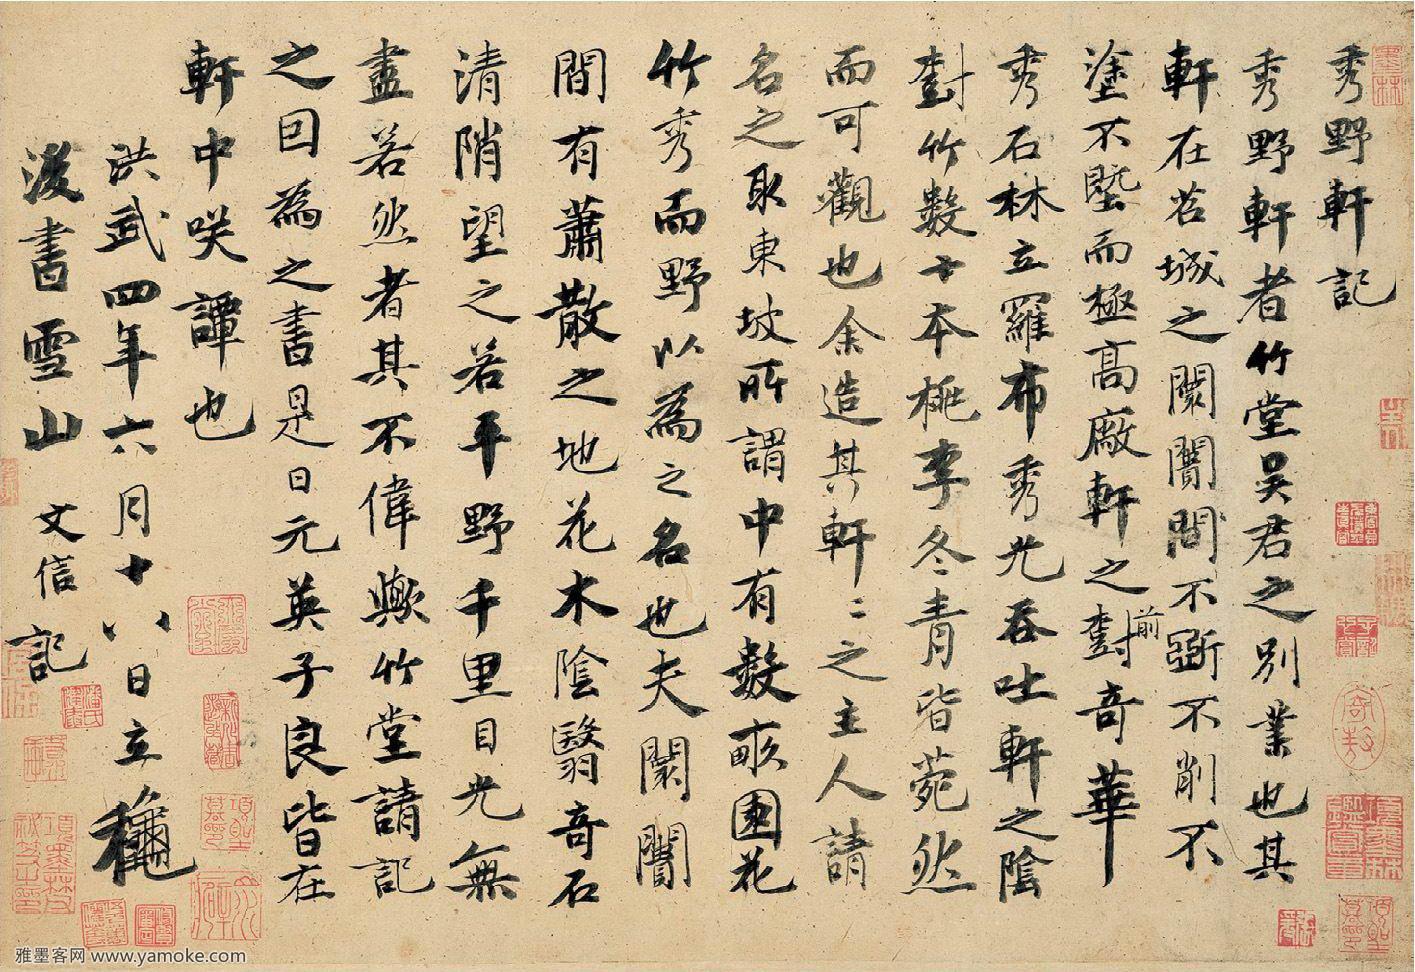 秀野軒記
秀野軒者竹堂吴君之別業也其
軒在苕城之闤闠間不斵不削不
塗不塈而極高厰軒之對奇華
前
秀石林立羅布秀光吞吐軒之陰
對竹數十本桃李冬青皆菀然
而可觀也余造其軒〻之主人請
名之取東坡所謂中有數畝園花
竹秀而野以為之名也夫闤闠
間有蕭散之地花木陰翳奇石
清陗望之若平野千里目光無
盡若然者其不偉歟竹堂請記
之因為之書是日元英子良皆在
軒中咲譚也
洪武四年六月十八日立穐
後書雪山 文信記
雅墨客网 www.yamoke.com